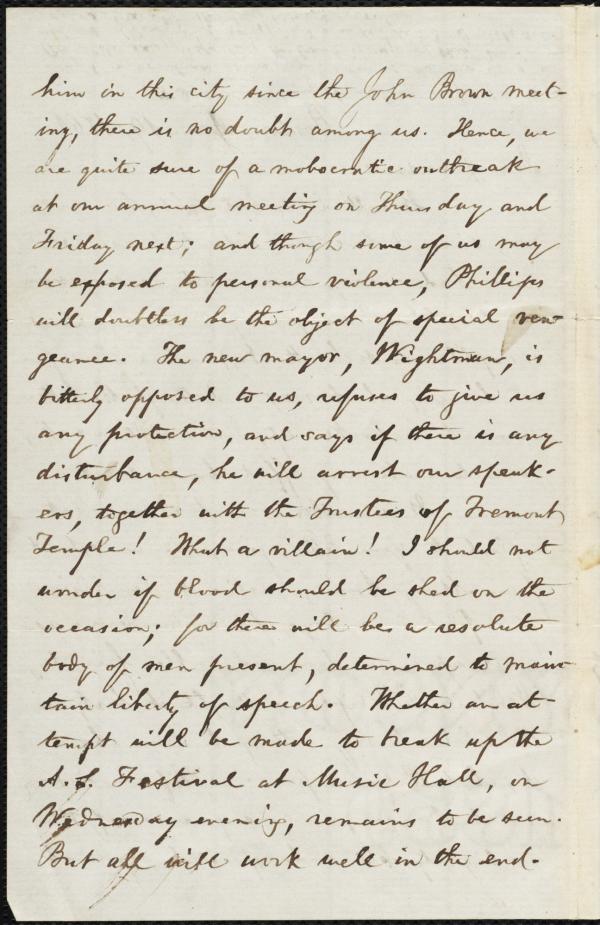 him in this city since the John Brown meet-
ing, there is no doubt among us. Hence, we
are quite sure of a mobocratic outbreak
at our annual meeting on Thursday and
Friday next; and though some of us may
be exposed to personal violence, Phillips
will doubtless be the object of special ven-
geance. The new mayor, Wightman, is
bitterly opposed to us, refuses to give us
any protection, and says if there is any
disturbance, he will arrest our speak-
ers, together with the Trustees of Tremont
Temple! What a villain! I should not
wonder if blood should be shed on the
occasion; for there will be a resolute
body of men present, determined to main-
tain liberty of speech. Whether an at-
tempt will be made to break up the
A. S. Festival at Music Hall, on
Wednesday evening, remains to be seen.
But all will work well in the end.